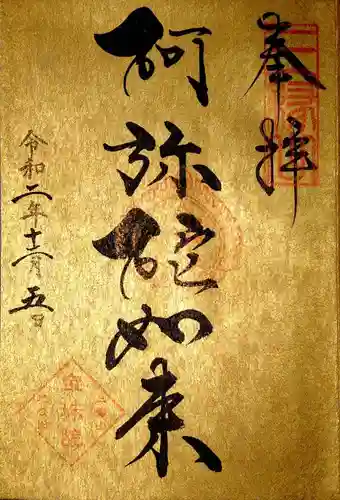 奉拝
阿弥陀如来
令和二年十二月五日